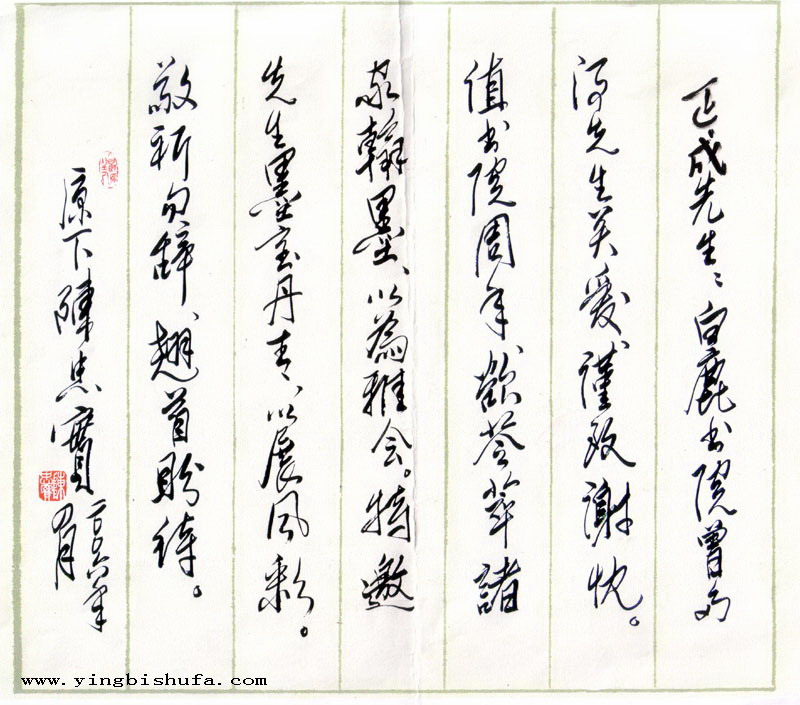 正成先生：白鹿书院曾多
得先生关爱、謹致謝忱。
值书院周年、欲荟萃諸
家翰墨、以為雅会。特邀
先生墨宝丹青、以展风彩。
敬祈勿辞、翘首盼待。
原下陳忠實
二〇〇六年
四月
www.yingbishufa.com